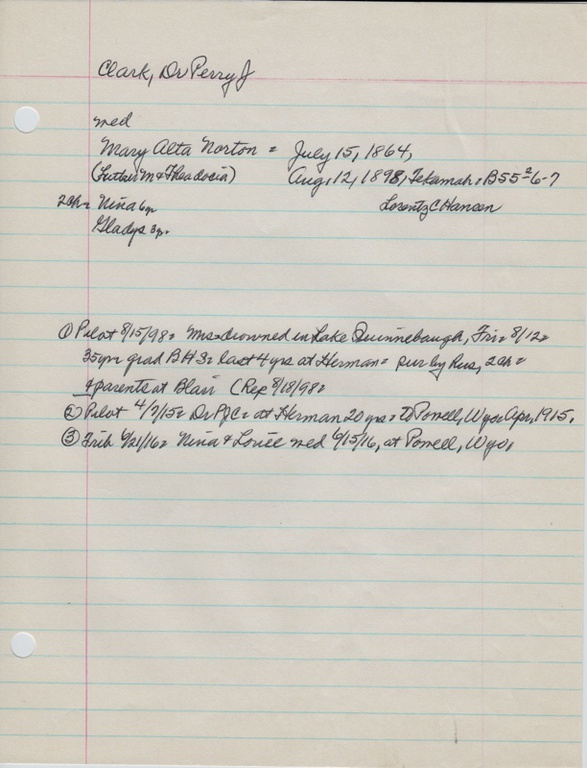 Clark, Dr Perry J
med
Mary Alta Norton = July 15, 1864,
(Luther M & Theadocia) Aug, 12, 1898, Tekamah = B55-2-6-7
2ch = Nina 6yr Lorentz C Hansen
Gladys 3yr.
① Pilot 8/15/98 = Mrs = drowned in Lake Quinnebaugh, Fri = 8/12 =
35yr = grad BHS = last 4 yrs at Herman = sur by Hus, 2ch =
& parents at Blair (Rep 8/18/98 =
② Pilot 4/7/15 = Dr PJC = at Herman 20 yrs = to Powell, Wyo = Apr, 1915.
③ Trib 6/21/16 = Nina & med 6/15/16, at Powell, Wyo,